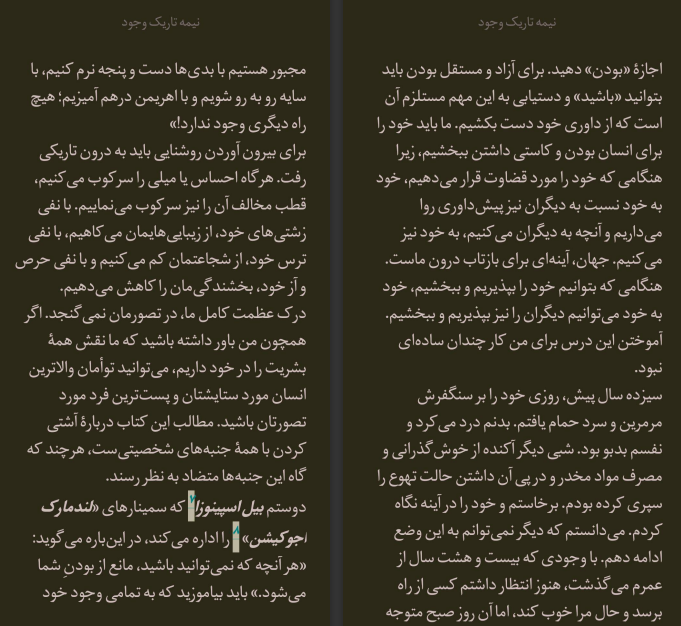 نیمه تاریک وجود
مجبور هستیم با بدی‌ها دست و پنجه نرم کنیم، با
سایه رو به رو شویم و با اهریمن درهم آمیزیم؛ هیچ
راه دیگری وجود ندارد!»
برای بیرون آوردن روشنایی باید به درون تاریکی
رفت. هرگاه احساس یا میلی را سرکوب می‌کنیم،
قطب مخالف آن را نیز سرکوب می‌نماییم. با نفی
زشتی‌های خود، از زیبایی‌هایمان می‌کاهیم، با نفی
ترس خود، از شجاعتمان کم می‌کنیم و با نفی حرص
و آز خود، بخشندگی‌مان را کاهش می‌دهیم.
درک عظمت کامل ما، در تصورمان نمی‌گنجد. اگر
همچون من باور داشته باشید که ما نقش همهٔ
بشریت را در خود داریم، می‌توانید توأمان والاترین
انسان مورد ستایشتان و پست‌ترین فرد مورد
تصورتان باشید. مطالب این کتاب دربارهٔ آشتی
کردن با همهٔ جنبه‌های شخصیتی‌ست، هرچند که
گاه این جنبه‌ها متضاد به نظر رسند.
دوستم بیل اسپینوزا۷ که سمینارهای «لندمارک
اجوکیشن»۸ را اداره می‌کند، در این‌باره می‌گوید:
«هر آنچه که نمی‌توانید باشید، مانع از بودنِ شما
می‌شود.» باید بیاموزید که به تمامی وجود خود
نیمه تاریک وجود
اجازهٔ «بودن» دهید. برای آزاد و مستقل بودن باید
بتوانید «باشید» و دستیابی به این مهم مستلزم آن
است که از داوری خود دست بکشیم. ما باید خود را
برای انسان بودن و کاستی داشتن ببخشیم، زیرا
هنگامی که خود را مورد قضاوت قرار می‌دهیم، خود
به خود نسبت به دیگران نیز پیش‌داوری روا
می‌داریم و آنچه به دیگران می‌کنیم، به خود نیز
می‌کنیم. جهان، آینه‌ای برای بازتاب درون ماست.
هنگامی که بتوانیم خود را بپذیریم و ببخشیم، خود
به خود می‌توانیم دیگران را نیز بپذیریم و ببخشیم.
آموختن این درس برای من کار چندان ساده‌ای
نبود.
سیزده سال پیش، روزی خود را بر سنگفرش
مرمرین و سرد حمام یافتم. بدنم درد می‌کرد و
نفسم بدبو بود. شبی دیگر آکنده از خوش‌گذرانی و
مصرف مواد مخدر و در پی آن داشتن حالت تهوع را
سپری کرده بودم. برخاستم و خود را در آینه نگاه
کردم. می‌دانستم که دیگر نمی‌توانم به این وضع
ادامه دهم. با وجودی که بیست و هشت سال از
عمرم می‌گذشت، هنوز انتظار داشتم کسی از راه
برسد و حال مرا خوب کند، اما آن روز صبح متوجه